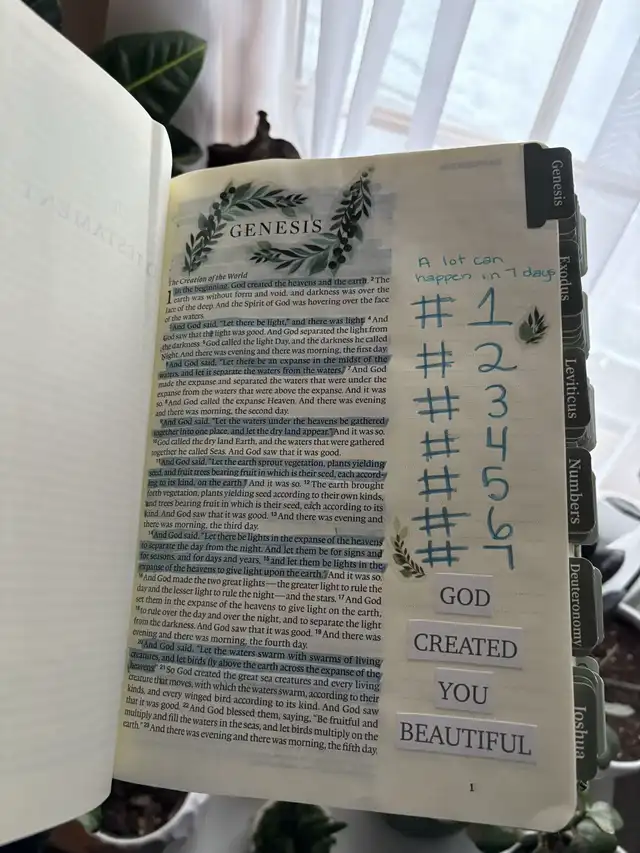 GENESIS
The Creation of the World
1 In the beginning, God created the heavens and the earth. 2 The
earth was without form and void, and darkness was over the
face of the deep. And the Spirit of God was hovering over the face
of the waters.
3 And God said, "Let there be light," and there was light. 4 And
God saw that the light was good. And God separated the light from
the darkness. 5 God called the light Day, and the darkness he called
Night. And there was evening and there was morning, the first day.
6 And God said, "Let there be an expanse in the midst of the
waters, and let it separate the waters from the waters." 7 And God
made the expanse and separated the waters that were under the
expanse from the waters that were above the expanse. And it was
so. 8 And God called the expanse Heaven. And there was evening
and there was morning, the second day.
9 And God said, "Let the waters under the heavens be gathered
together into one place, and let the dry land appear." And it was so.
10 God called the dry land Earth, and the waters that were gathered
together he called Seas. And God saw that it was good.
11 And God said, "Let the earth sprout vegetation, plants yielding
seed, and fruit trees bearing fruit in which is their seed, each accord-
ing to its kind, on the earth." And it was so. 12 The earth brought
forth vegetation, plants yielding seed according to their own kinds,
and trees bearing fruit in which is their seed, each according to its
kind. And God saw that it was good. 13 And there was evening and
there was morning, the third day.
14 And God said, "Let there be lights in the expanse of the heavens
to separate the day from the night. And let them be for signs and
for seasons, and for days and years, 15 and let them be lights in the
expanse of the heavens to give light upon the earth." And it was so.
16 And God made the two great lights—the greater light to rule the
day and the lesser light to rule the night—and the stars. 17 And God
set them in the expanse of the heavens to give light on the earth,
18 to rule over the day and over the night, and to separate the light
from the darkness. And God saw that it was good. 19 And there was
evening and there was morning, the fourth day.
20 And God said, "Let the waters swarm with swarms of living
creatures, and let birds fly above the earth across the expanse of the
heavens." 21 So God created the great sea creatures and every living
creature that moves, with which the waters swarm, according to their
kinds, and every winged bird according to its kind. And God saw
that it was good. 22 And God blessed them, saying, "Be fruitful and
multiply and fill the waters in the seas, and let birds multiply on the
earth." 23 And there was evening and there was morning, the fifth day.
A lot can
happen in 7 days
# 1
# 2
# 3
# 4
# 5
# 6
# 7
GOD
CREATED
YOU
BEAUTIFUL
1
Genesis
Exodus
Leviticus
Numbers
Deuteronomy
Joshua